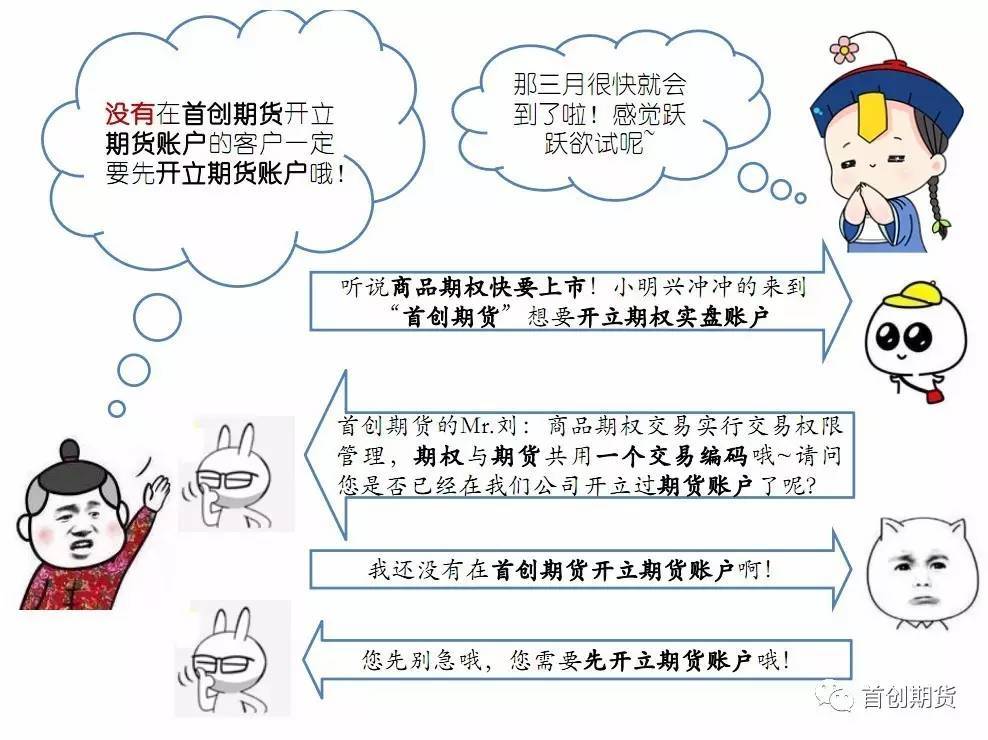 没有在首创期货开立
期货账户的客户一定
要先开立期货账户哦！
那三月很快就会
到了啦！感觉跃
跃欲试呢~
听说商品期权快要上市！小明兴冲冲的来到
“首创期货”想要开立期权实盘账户
首创期货的Mr.刘：商品期权交易实行交易权限
管理，期权与期货共用一个交易编码哦~请问
您是否已经在我们公司开立过期货账户了呢？
我还没有在首创期货开立期货账户啊！
您先别急哦，您需要先开立期货账户哦！
首创期货